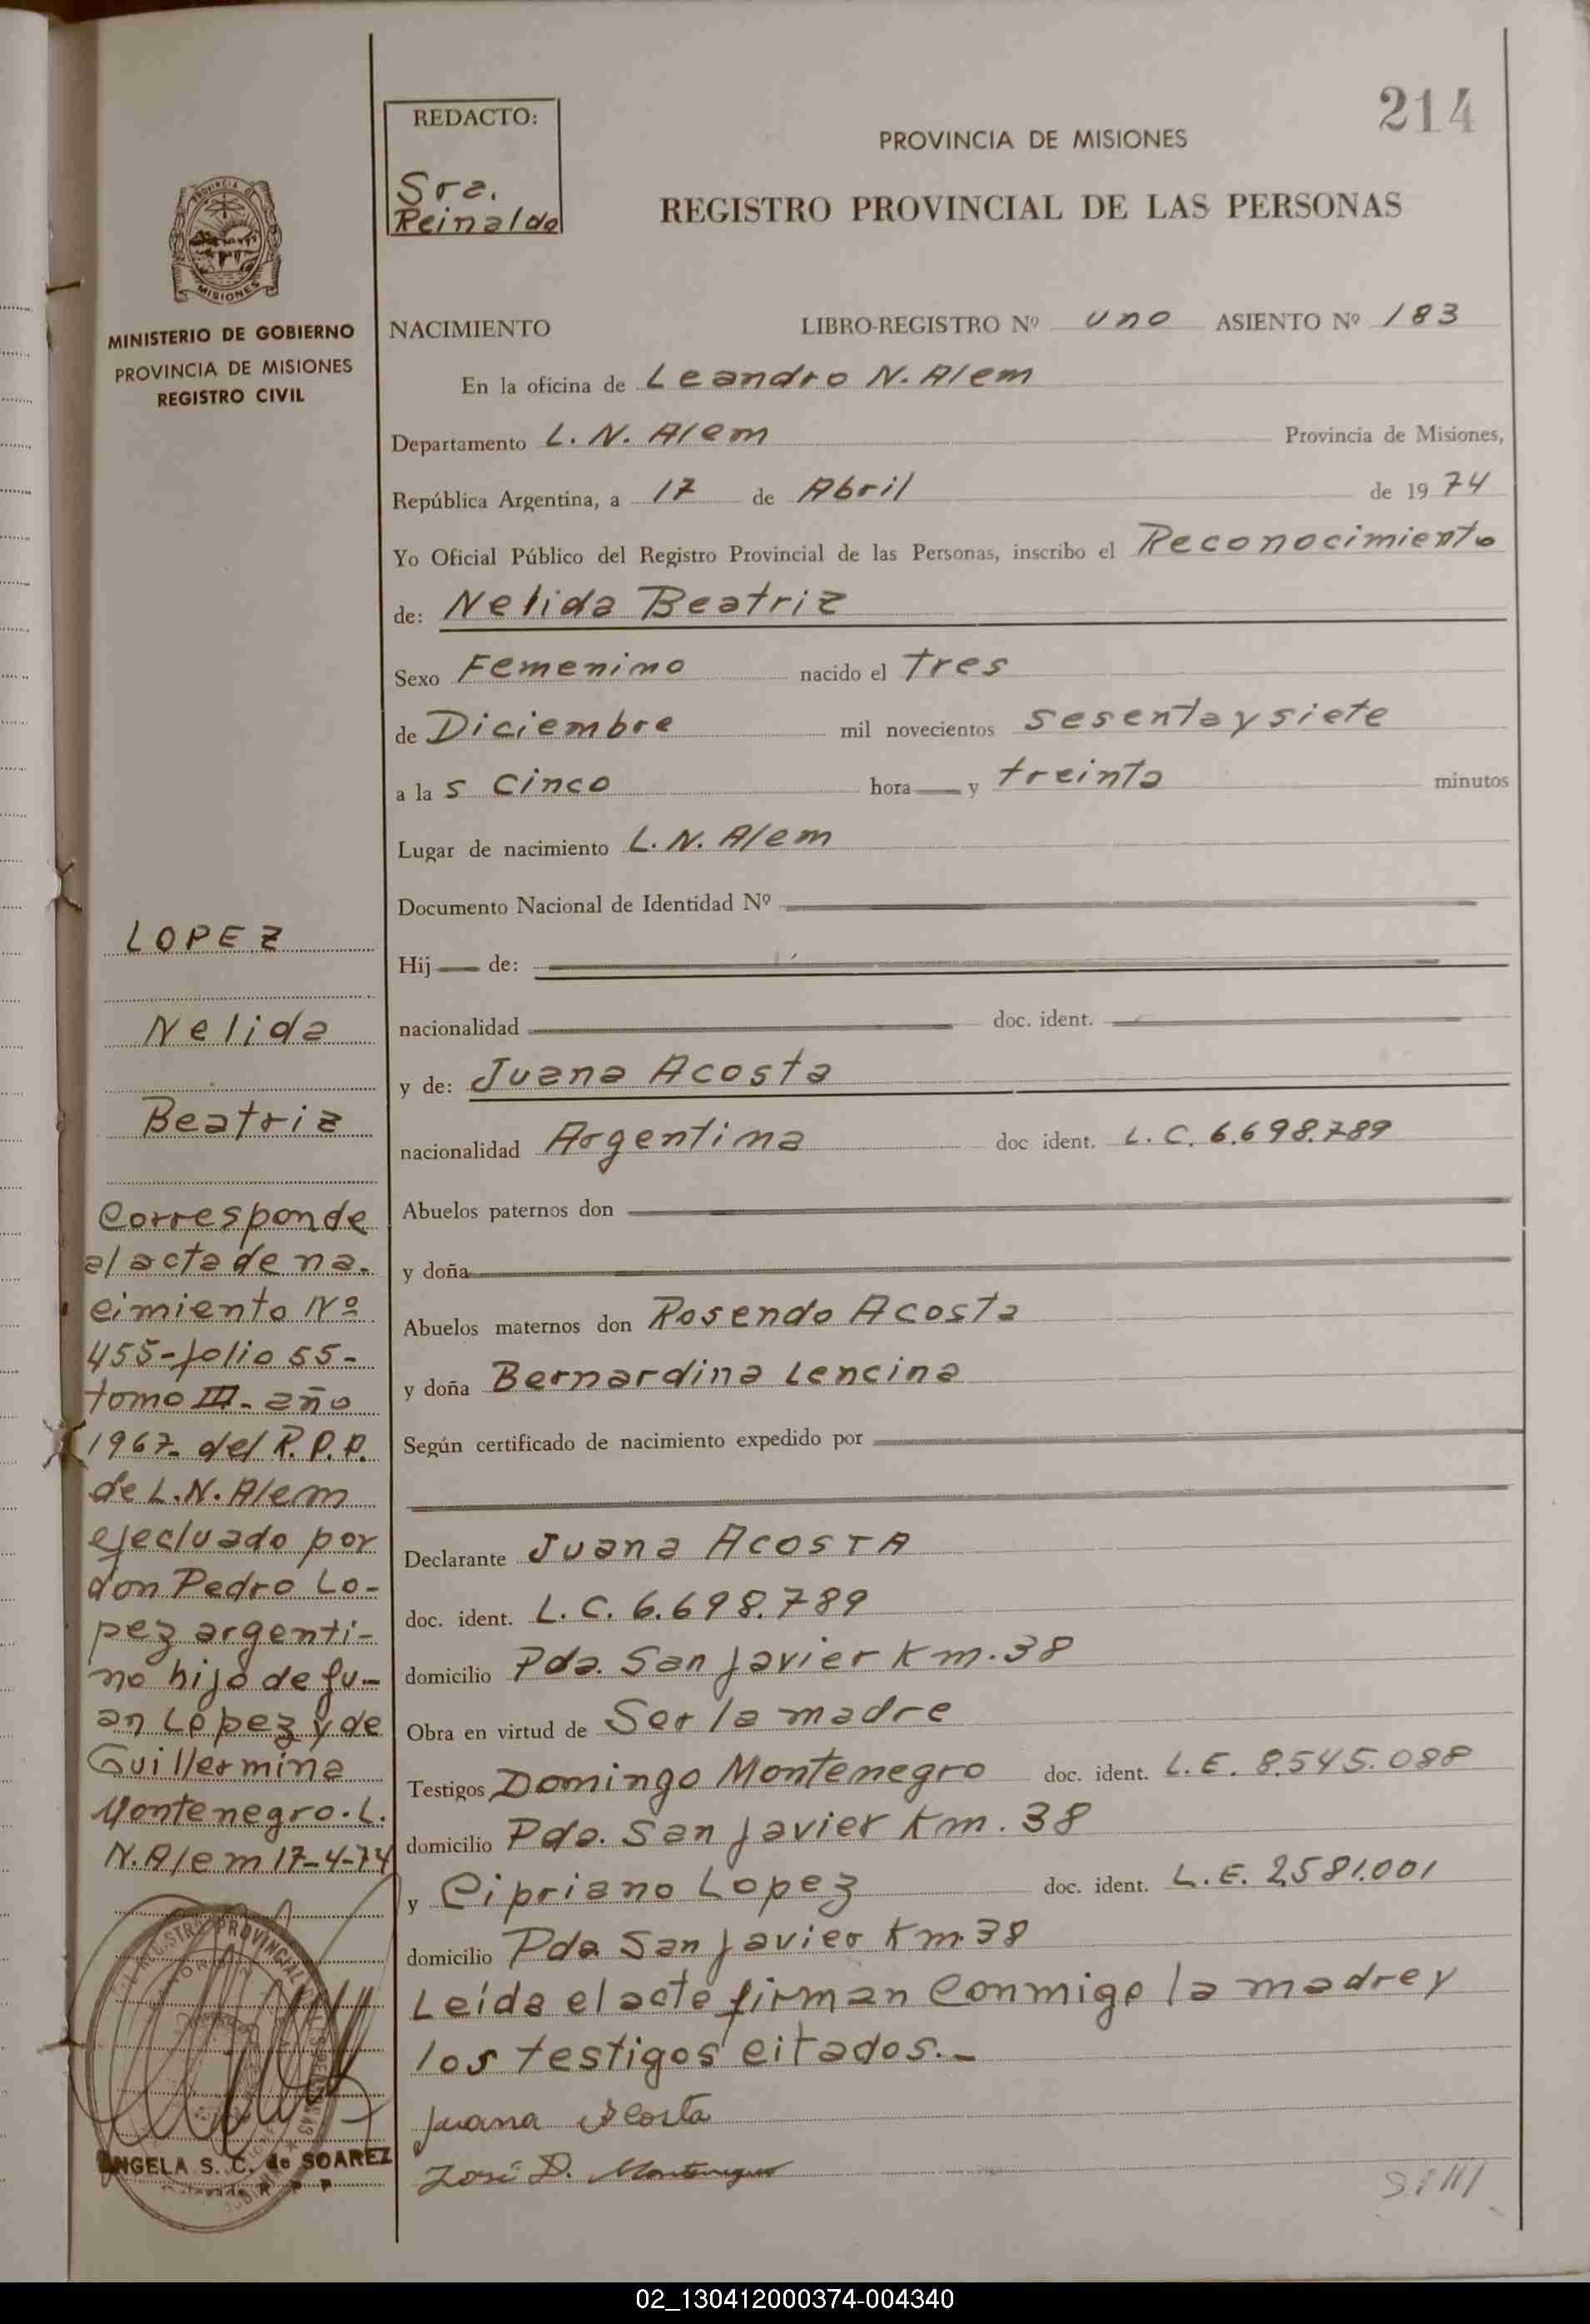 214
REDACTO:
Sra.
Reinaldo
PROVINCIA DE MISIONES
REGISTRO PROVINCIAL DE LAS PERSONAS
PROVINCIA DE
MISIONES
MINISTERIO DE GOBIERNO
PROVINCIA DE MISIONES
REGISTRO CIVIL
NACIMIENTO LIBRO-REGISTRO Nº uno ASIENTO Nº 183
En la oficina de Leandro N. Alem
Departamento L. N. Alem Provincia de Misiones,
República Argentina, a 17 de Abril de 1974
Yo Oficial Público del Registro Provincial de las Personas, inscribo el Reconocimiento
de: Nelida Beatriz
Sexo Femenino nacido el tres
de Diciembre mil novecientos sesenta y siete
a la s cinco hora y treinta minutos
Lugar de nacimiento L. N. Alem
Documento Nacional de Identidad Nº
Hij de:
nacionalidad doc. ident.
y de: Juana Acosta
nacionalidad Argentina doc ident. L. C. 6.698.789
Abuelos paternos don
y doña
Abuelos maternos don Rosendo Acosta
y doña Bernardina Lencina
Según certificado de nacimiento expedido por
Declarante Juana ACOSTA
doc. ident. L. C. 6.698.789
domicilio Pda. San Javier Km. 38
Obra en virtud de Ser la madre
Testigos Domingo Montenegro doc. ident. L. E. 8.545.088
domicilio Pda. San Javier Km. 38
y Cipriano Lopez doc. ident. L. E. 2.581.001
domicilio Pda San Javier Km. 38
Leída el acta firman conmigo la madre y
los testigos citados.-
Juana Acosta
José D. Montenegro
LOPEZ
Nelida
Beatriz
Corresponde
al acta de na-
cimiento Nº
455-folio 55-
tomo III- año
1967- del R. P. P.
de L. N. Alem
efectuado por
don Pedro Lo-
pez argenti-
no hijo de Ju-
an Lopez y de
Guillermina
Montenegro. L.
N. Alem 17-4-74
REGISTRO PROVINCIAL
ANGELA S. C. de SOAREZ
02_130412000374-004340